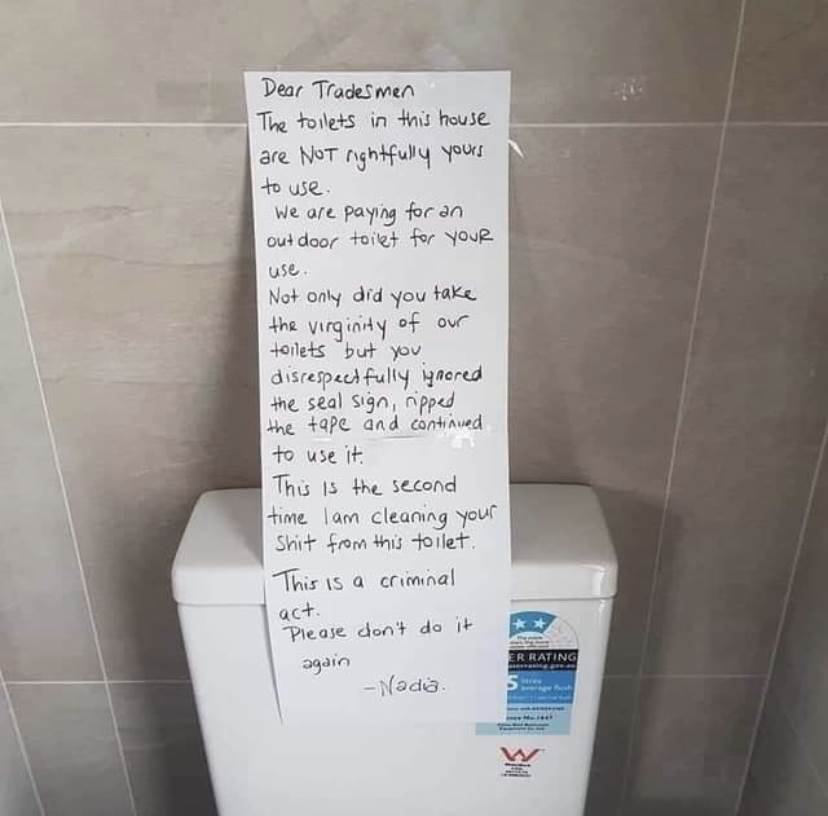 Dear Tradesmen
The toilets in this house
are NOT rightfully yours
to use.
We are paying for an
outdoor toilet for YOUR
use.
Not only did you take
the virginity of our
toilets but you
disrespectfully ignored
the seal sign, ripped
the tape and continued
to use it.
This is the second
time I am cleaning your
shit from this toilet.
This is a criminal
act.
Please don't do it
again
-Nadia.
ER RATING
5 litres
average flush
W